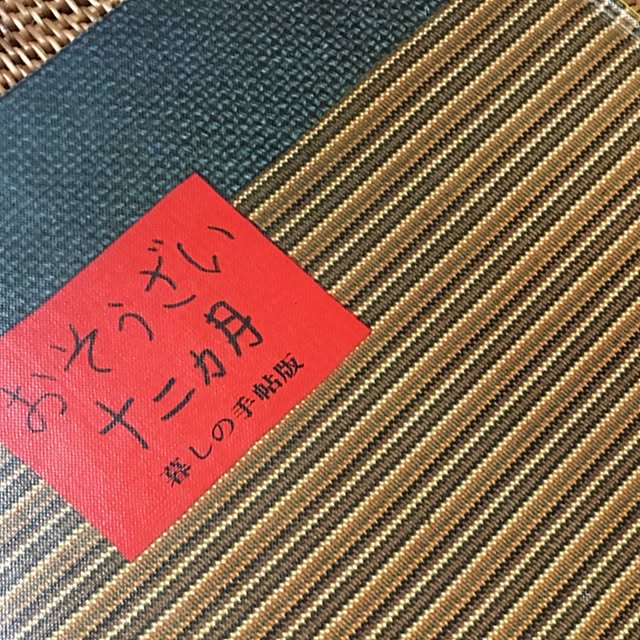 おそうざい
十二カ月
暮しの手帖版